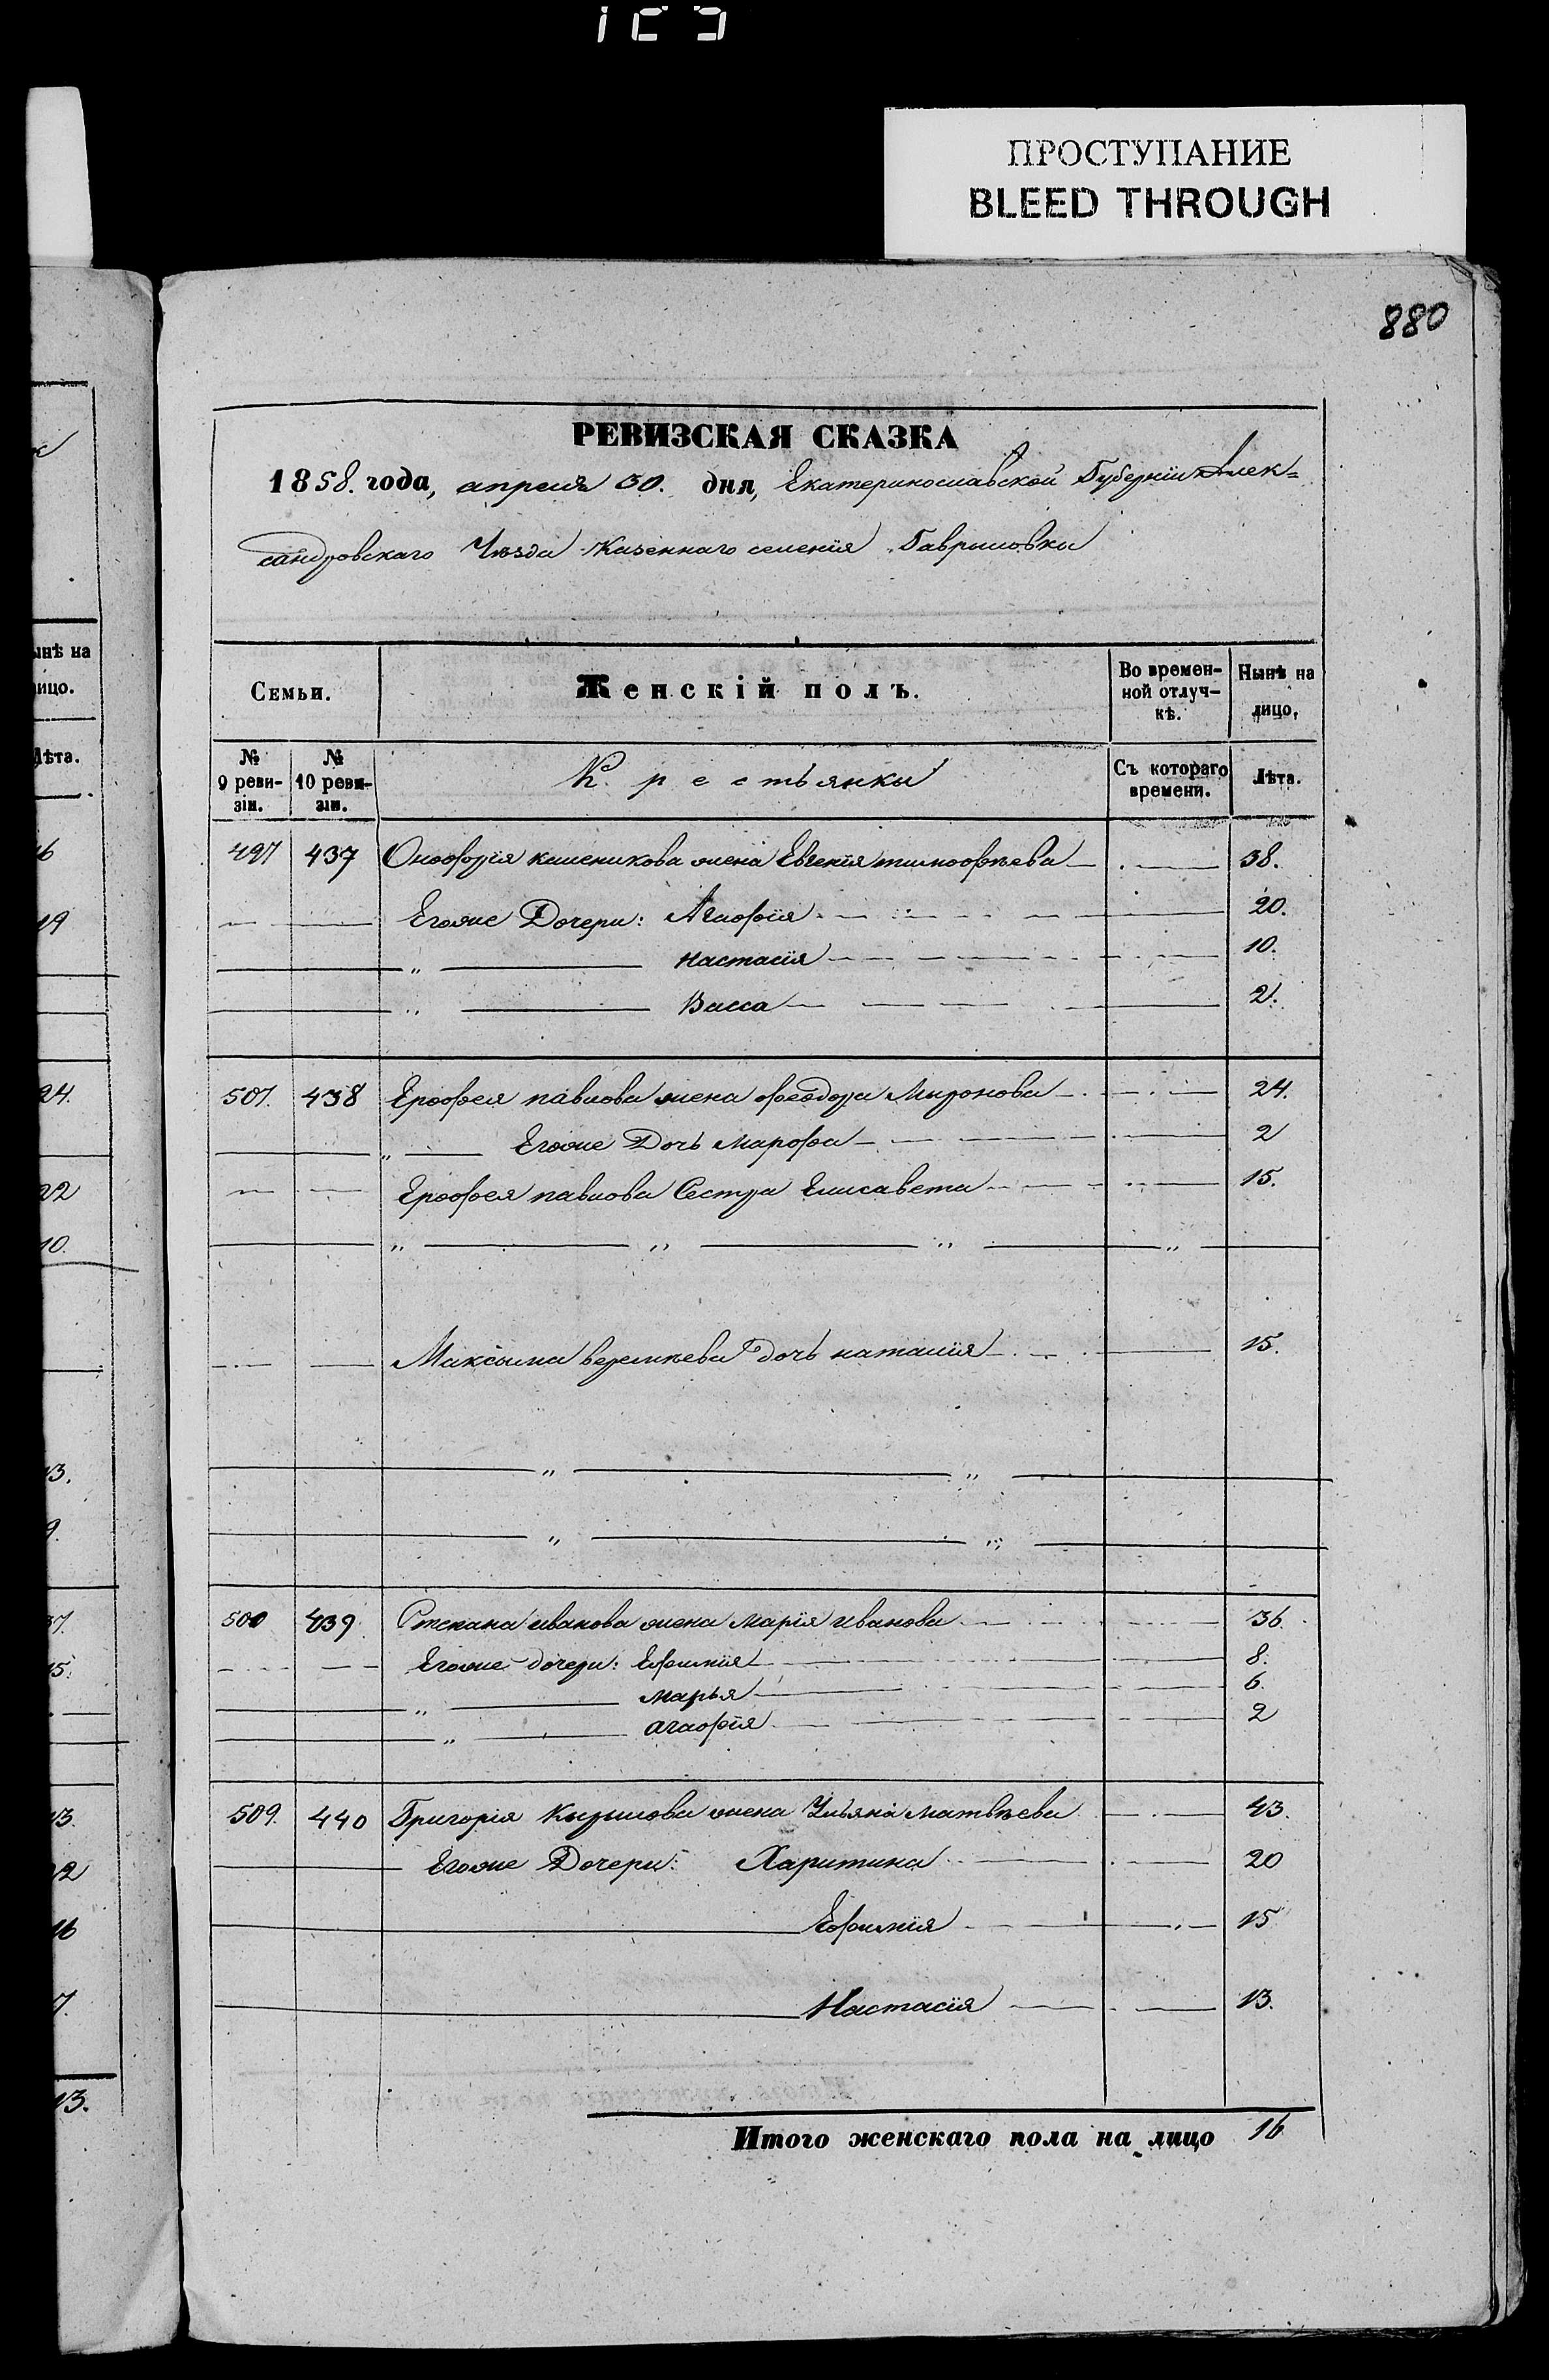 ПРОСТУПАНИЕ
BLEED THROUGH
880
РЕВИЗСКАЯ СКАЗКА
1858. года, апреля 30. дня, Екатеринославской Губерніи Алек=
сандровскаго Уѣзда Казеннаго селенія Гавриловки
Семьи. Женскій полъ. Во времен-ной отлуч-кѣ. Нынѣ на лицо.
№ 9 реви-зіи. № 10 реви-зіи. Крестьянки Съ котораго времени. Лѣта.
497 437 Онофрія жена Евгенія тимофѣева 38.
Егоже Дочери: Агафія 20.
Настасія 10.
Васса 2.
507. 438 Ерофея павлова жена феодора Миронова 24.
Егоже Дочь Марфа 2
Ерофея павлова Сестра Елисавета 15.
Максима веремѣева дочь наталія 15.
500 439 Степана иванова жена марія иванова 36.
Егоже дочери: Ефимія 8.
марья 6.
агафія 2
509. 440 Григорія Кирилова жена Ульяна матвѣева 43.
Егоже Дочери: Харитина 20
Ефимія 15
Настасія 13.
Итого женскаго пола на лицо 16
ынѣ на
ицо.
Лѣта.
19
24.
22
10.
13.
9.
37.
15.
13.
12
16
7.
13.